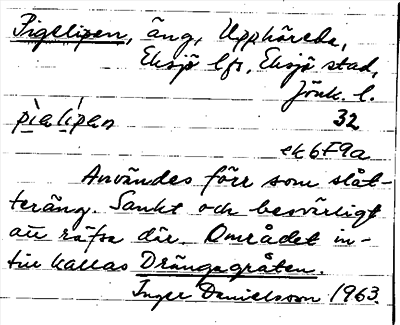 Pigelipen, äng, Upphöreda,
Eksjö lfs, Eksjö stad,
Jönk. l.
pìalípən 32
ek 6F9a
Användes förr som slåt-
teräng. Sankt och besvärligt
att räfsa där. Området in-
till kallas Drängagråten.
Inger Danielsson 1963.